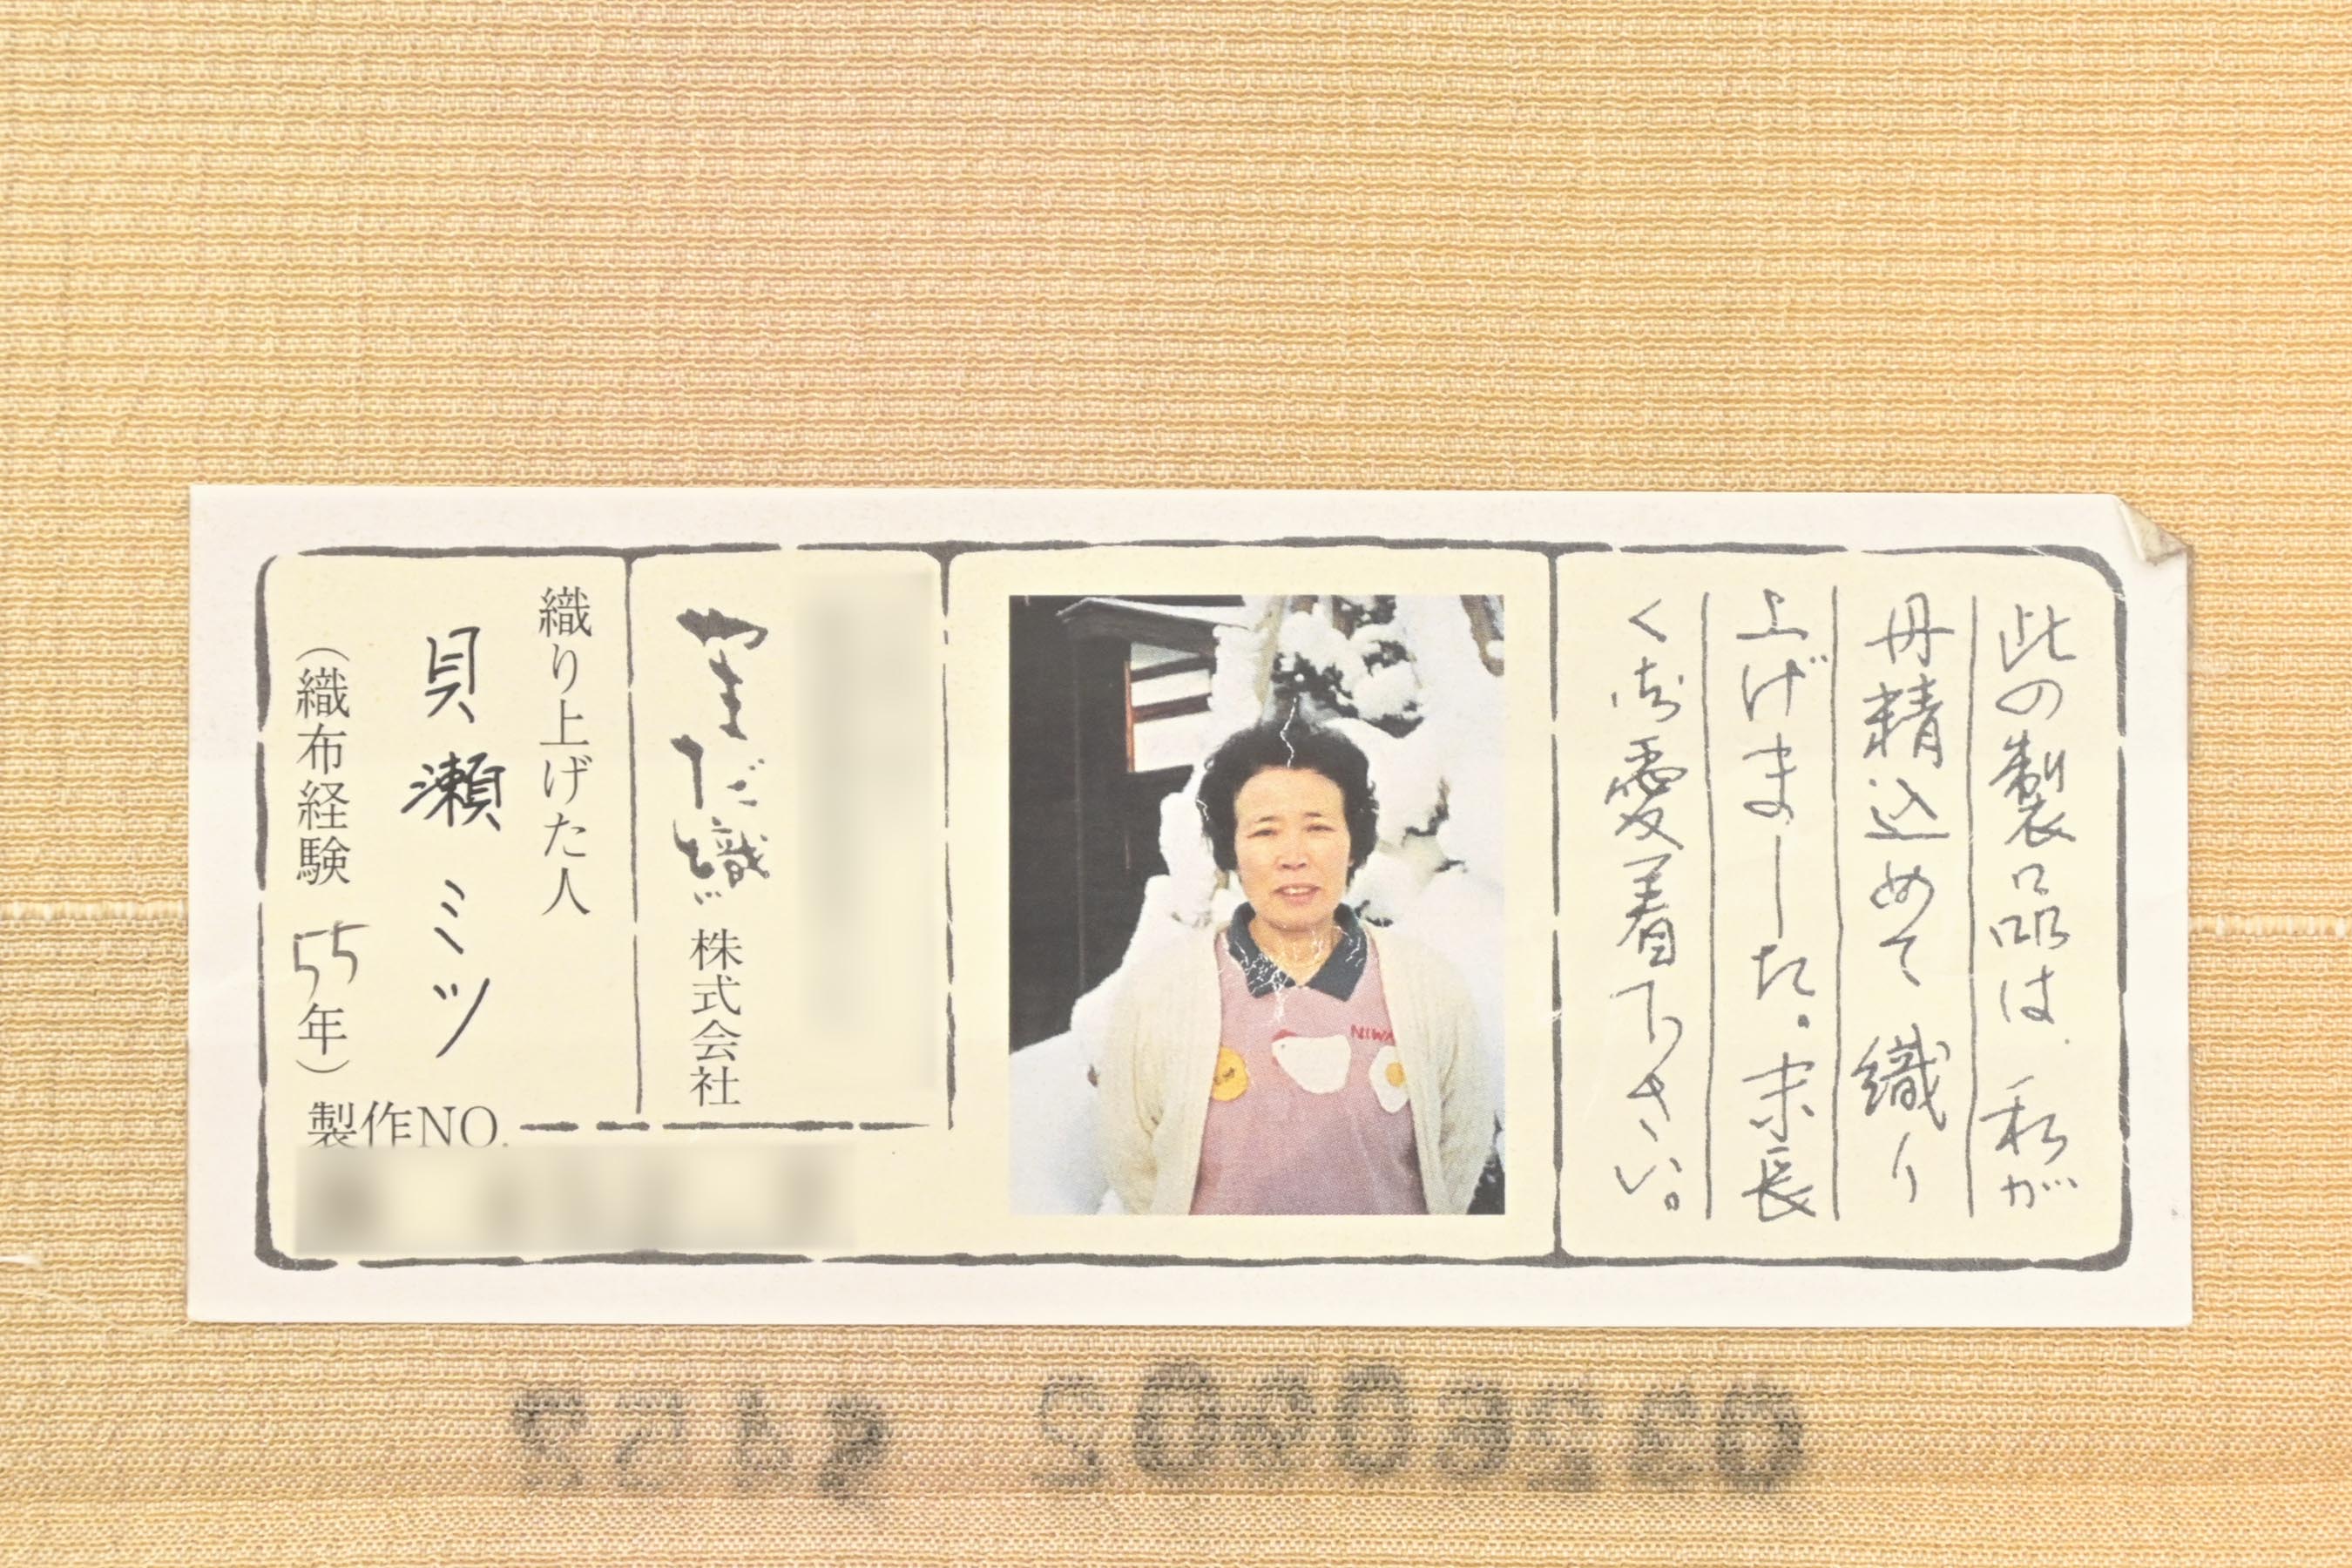 此の製品は、私が
丹精込めて織り
上げました。末長
く御愛着下さい。
NIWA
やまだ織株式会社
織り上げた人
貝瀬ミツ
（織布経験 55年）
製作NO.